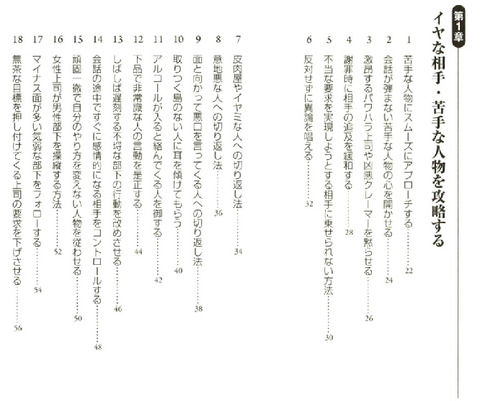 第1章
イヤな相手・苦手な人物を攻略する
1 苦手な人物にスムーズにアプローチする……22
2 会話が弾まない苦手な人物の心を開かせる……24
3 激昂するパワハラ上司や凶悪クレーマーを黙らせる……26
4 謝罪時に相手の追及を緩和する……28
5 不当な要求を実現しようとする相手に乗せられない方法……30
6 反対せずに異論を唱える……32
7 皮肉屋やイヤミな人への切り返し法……34
8 意地悪な人への切り返し法……36
9 面と向かって悪口を言ってくる人への切り返し法……38
10 取りつく島のない人に耳を傾けてもらう……40
11 アルコールが入ると絡んでくる人を御する……42
12 下品で非常識な人の言動を是正する……44
13 しばしば遅刻する不埒な部下の行動を改めさせる……46
14 会話の途中ですぐに感情的になる相手をコントロールする……48
15 頑固一徹で自分のやり方を変えない人物を従わせる……50
16 女性上司が男性部下を操縦する方法……52
17 マイナス面が多い気弱な部下をフォローする……54
18 無茶な目標を押し付けてくる上司の要求を下げさせる……56